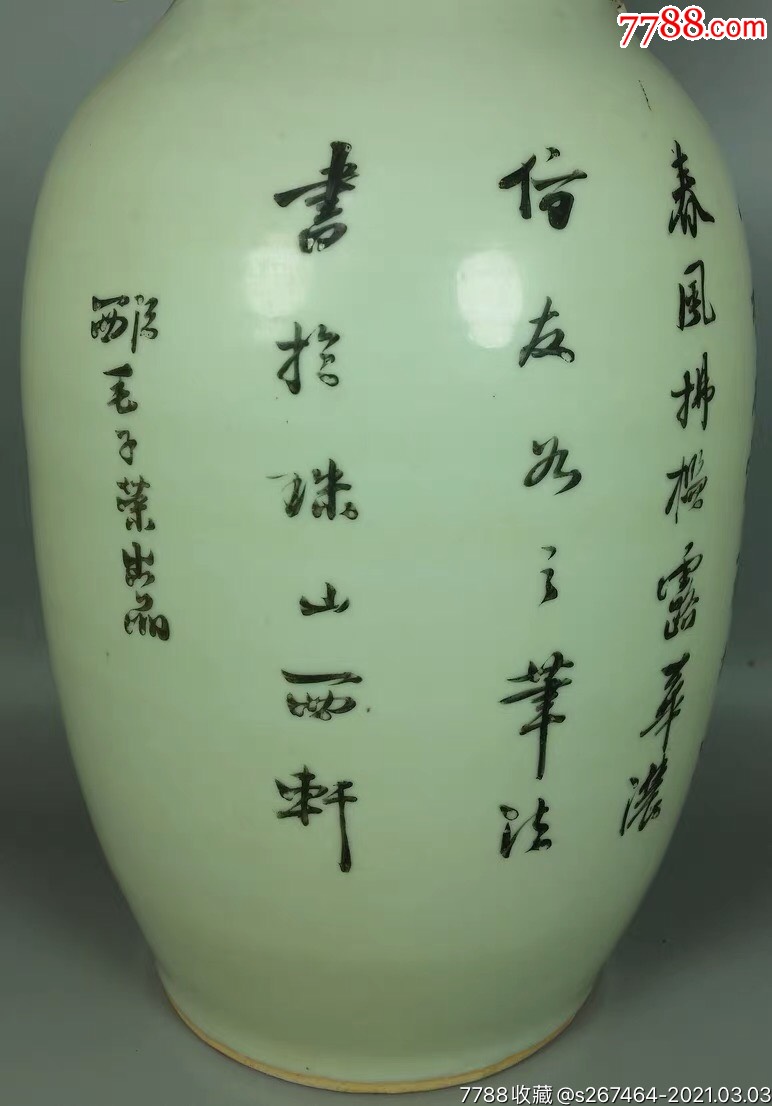 7788.com
春風拂檻露華濃
仿友之筆法
書於珠山西軒
毛子榮出品
7788收藏@s267464-2021.03.03